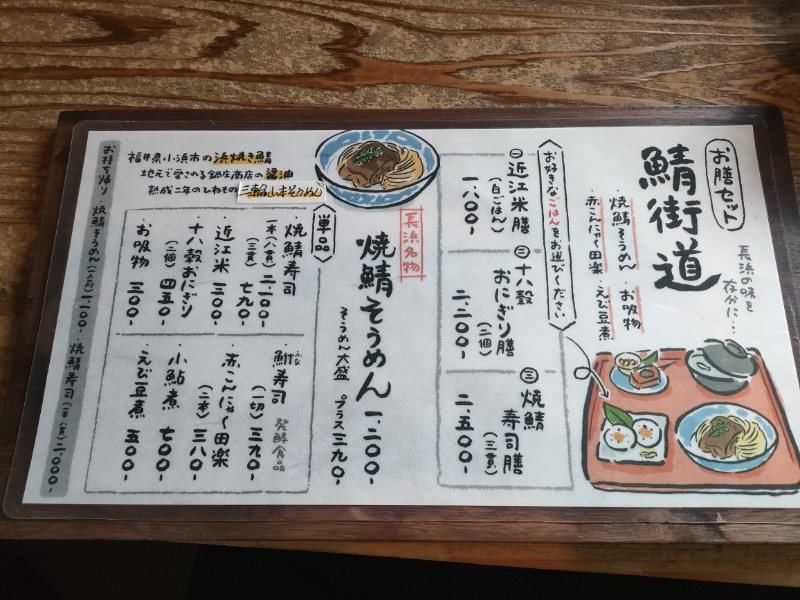 お膳セット
鯖街道
長浜の味を
存分に…
・焼鯖そうめん ・お吸物
・赤こんにゃく田楽 ・えび豆煮
お好きなごはんをお選びください
㊀近江米膳
(白ごはん)
一、八〇〇-
㊁十八穀
おにぎり膳
(二個)
二、二〇〇-
㊂焼鯖
寿司膳
(三貫)
二、五〇〇-
長浜名物
焼鯖そうめん 一、二〇〇-
そうめん大盛 プラス三九〇-
福井県小浜市の浜焼き鯖
地元で愛される鍋庄商店の醤油
熟成二年のひねその三輪山本そうめん
単品
・焼鯖寿司
一本(八貫) 二、一〇〇-
(三貫) 七九〇-
・近江米 三〇〇-
・十八穀おにぎり
(二個) 四五〇-
・お吸物 三〇〇-
・鮒寿司
ふな
(一切) 三九〇-
発酵食品
・赤こんにゃく田楽
(二本) 三八〇-
・小鮎煮 七〇〇-
・えび豆煮 五〇〇-
お持ち帰り ・焼鯖そうめん(一人前)一、一〇〇- ・焼鯖寿司(一本八貫)二、〇〇〇-